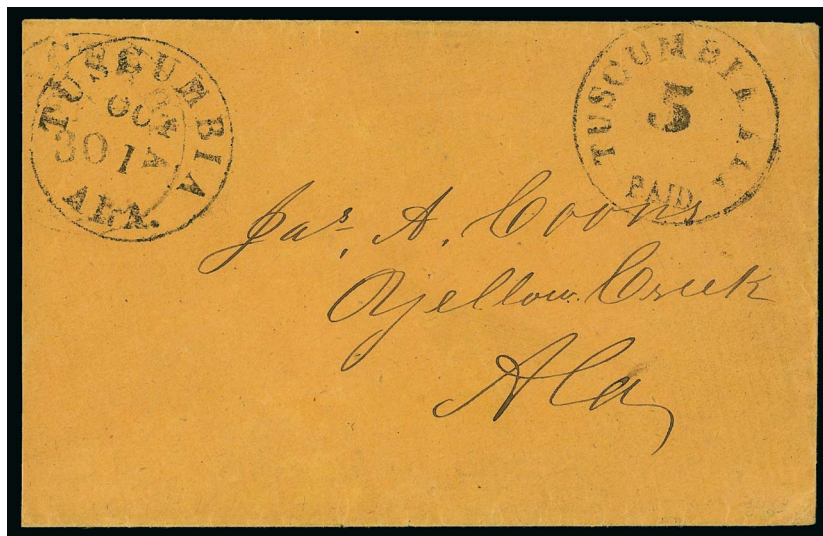 TUSCUMBIA
OCT
30 1
ALA.
TUSCUMBIA ALA
5
PAID
Jas. A. Coons
Yellow Creek
Ala,